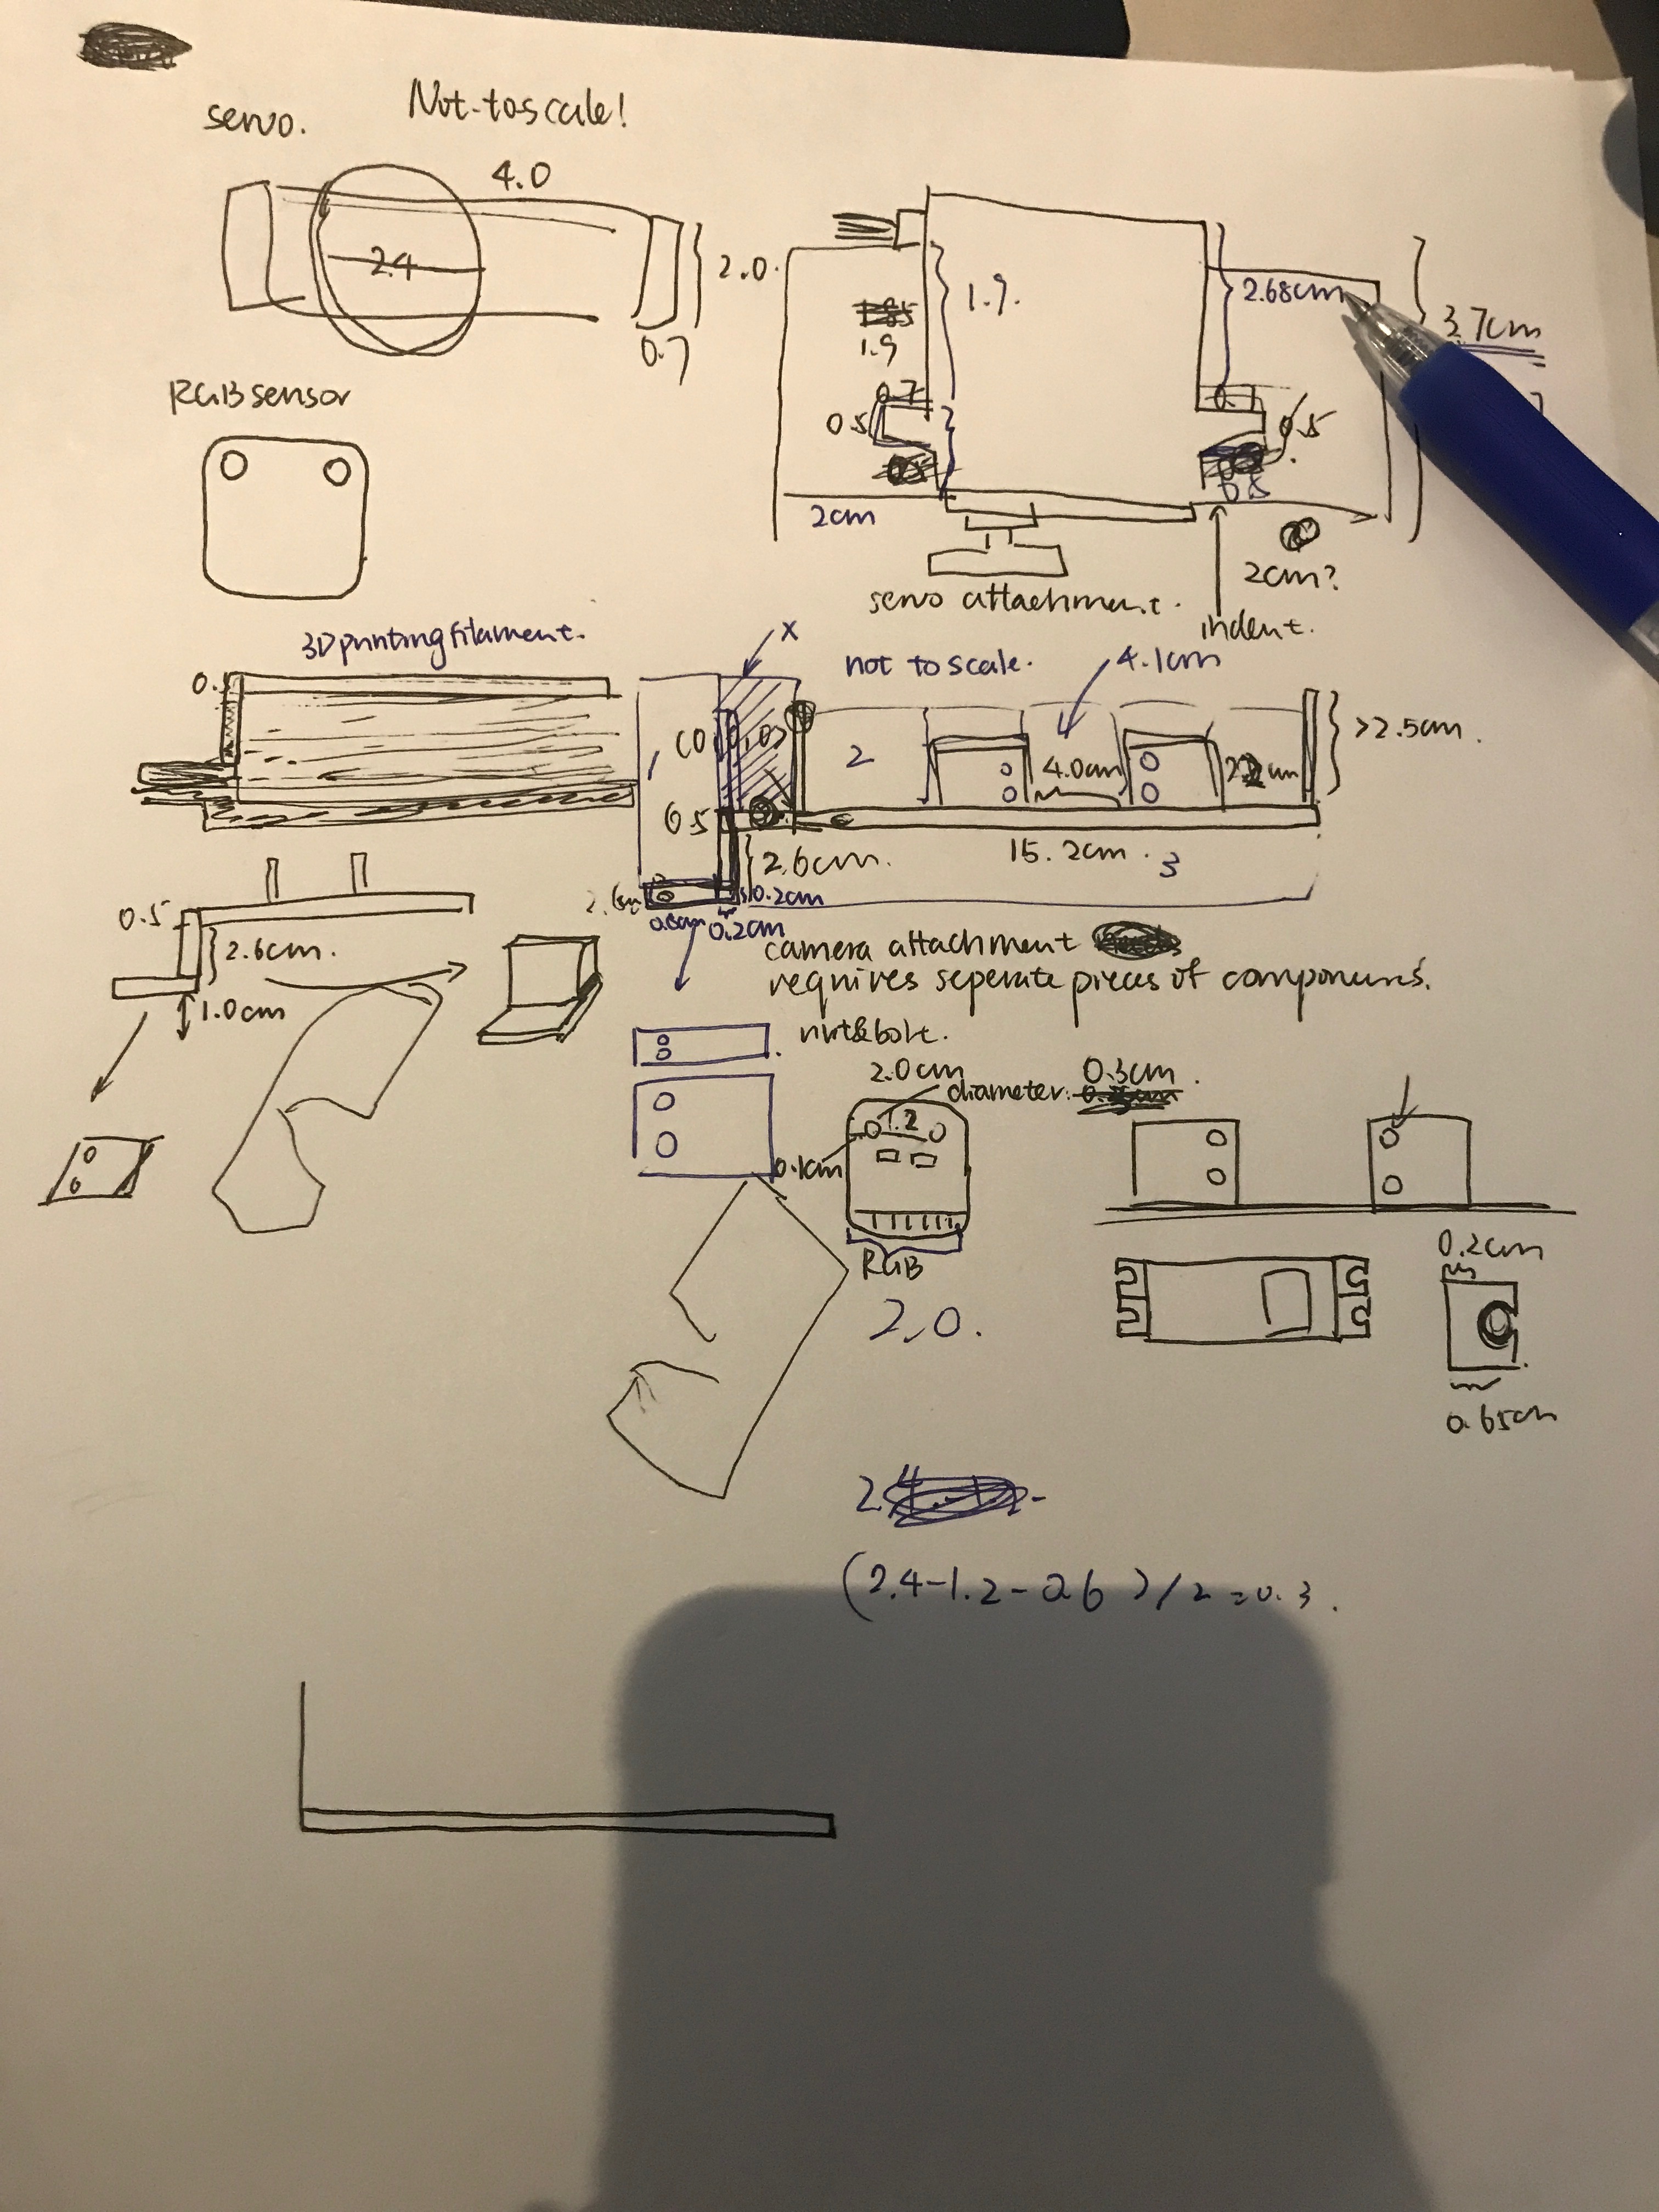 servo.
Not-to scale!
4.0
2.4
2.0.
0.7
RGB sensor
1.9.
1.9
0.7
0.5
2cm
2.68cm
3.7cm
0.5
0.5
2cm?
servo attachment.
indent.
3D printing filament.
x
not to scale.
4.1cm
2
4.0cm
>2.5cm.
0.5
2.6cm.
15.2cm.
3
0.2cm
0.2cm
0.5
2.6cm.
1.0cm
camera attachment
requires seperate pieces of components.
nut&bolt.
2.0cm
diameter:
0.3cm.
1.2
0.1cm
RGB
2.0.
0.2cm
0.65cm
(2.4-1.2-0.6)/2=0.3.